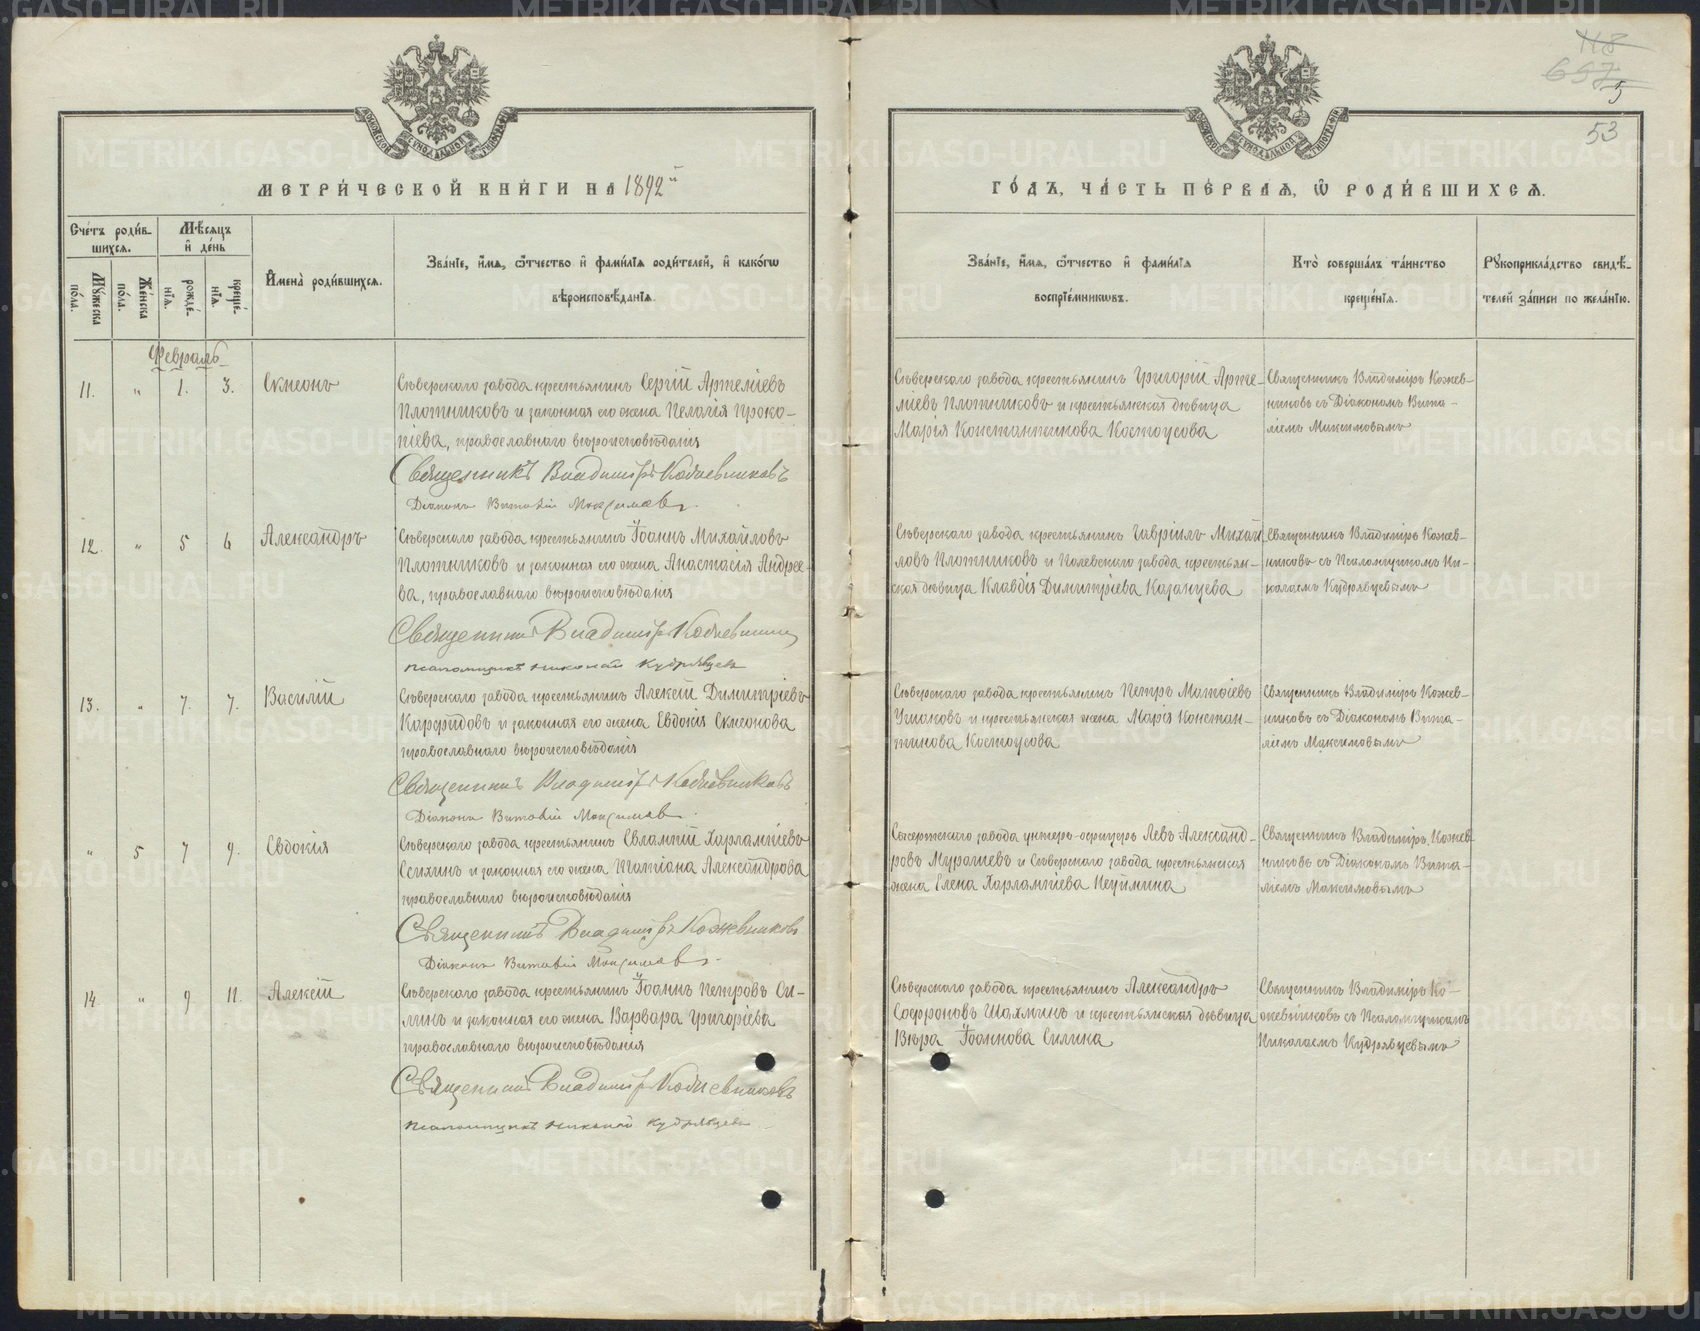 118
697
5
53
МЕТРИ́ЧЕСКОЙ КНИ́ГИ НА 1892й
ГО́ДЪ, ЧА́СТЬ ПЕ́РВАЯ, Ѽ РОДИ́ВШИХСЯ.
Сче́тъ роди́в-
шихся.
Мѣ́сяцъ
и де́нь
Му́жеска
по́ла.
Же́нска
по́ла.
рожде́-
нїя.
креще́-
нїя.
Имена̀ роди́вшихся.
Зва́нїе, и́мя, ѻ́тчество и фами́лїя роди́телей, и како́гѡ
вѣроисповѣ́данїя.
Зва́нїе, и́мя, ѻ́тчество и фами́лїя
воспрїе́мниковъ.
Кто̀ соверша́лъ та́инство
креще́нїя.
Рукоприкла́дство свидѣ́-
телей за́писи по жела́нїю.
Февраль
11. " 1. 3. Симеонъ
Сѣверскаго завода крестьянинъ Сергій Артеміевъ
Плотниковъ и законная его жена Пелагія Проко-
піева, православнаго вѣроисповѣданія
Священникъ Владиміръ Кожевниковъ
Діаконъ Виталій Максимовъ.
Сѣверскаго завода крестьянинъ Григорій Арте-
міевъ Плотниковъ и крестьянская дѣвица
Марія Константинова Костоусова
Священникъ Владиміръ Кожев-
никовъ съ Діакономъ Вита-
ліемъ Максимовымъ
12. " 5 6 Александръ
Сѣверскаго завода крестьянинъ Іоаннъ Михайловъ
Плотниковъ и законная его жена Анастасія Андрее-
ва, православнаго вѣроисповѣданія
Священникъ Владиміръ Кожевников
Псаломщикъ Николай Кудрявцевъ
Сѣверскаго завода крестьянинъ Гавріилъ Михай
ловъ Плотниковъ и Полевскаго завода крестьян-
ская дѣвица Клавдія Димитріева Казанцева
Священникъ Владиміръ Кожев-
никовъ съ Псаломщикомъ Ни-
колаемъ Кудрявцевымъ
13. " 7. 7. Василій
Сѣверскаго завода крестьянинъ Алексій Димитріевъ
Карфидовъ и законная его жена Евдокія Симеонова
православнаго вѣроисповѣданія
Священникъ Владиміръ Кожевниковъ
Діаконъ Виталій Максимовъ.
Сѣверскаго завода крестьянинъ Петръ Матѳіевъ
Ушаковъ и крестьянская жена Марія Констан-
тинова Костоусова
Священникъ Владиміръ Кожев-
никовъ съ Діакономъ Вита-
ліемъ Максимовымъ
" 5 7 9. Евдокія
Сѣверскаго завода крестьянинъ Евлампій Харлампіевъ
Сехинъ и законная его жена Татіана Александрова
православнаго вѣроисповѣданія
Священникъ Владиміръ Кожевниковъ
Діаконъ Виталій Максимовъ.
Сысертскаго завода унтеръ-офицеръ Левъ Александ-
ровъ Мурашевъ и Сѣверскаго завода крестьянская
жена Елена Харлампіева Неуймина
Священникъ Владиміръ Кожев
никовъ съ Діакономъ Вита-
ліемъ Максимовымъ
14. " 9 11. Алексій
Сѣверскаго завода крестьянинъ Іоаннъ Петровъ Си-
линъ и законная его жена Варвара Григоріева
православнаго вѣроисповѣданія
Священникъ Владиміръ Кожевниковъ
Псаломщикъ Николай Кудрявцевъ
Сѣверскаго завода крестьянинъ Александръ
Софроновъ Шахминъ и крестьянская дѣвица
Вѣра Іоаннова Силина
Священникъ Владиміръ Ко-
жевниковъ съ Псаломщикомъ
Николаемъ Кудрявцевымъ
METRIKI.GASO-URAL.RU